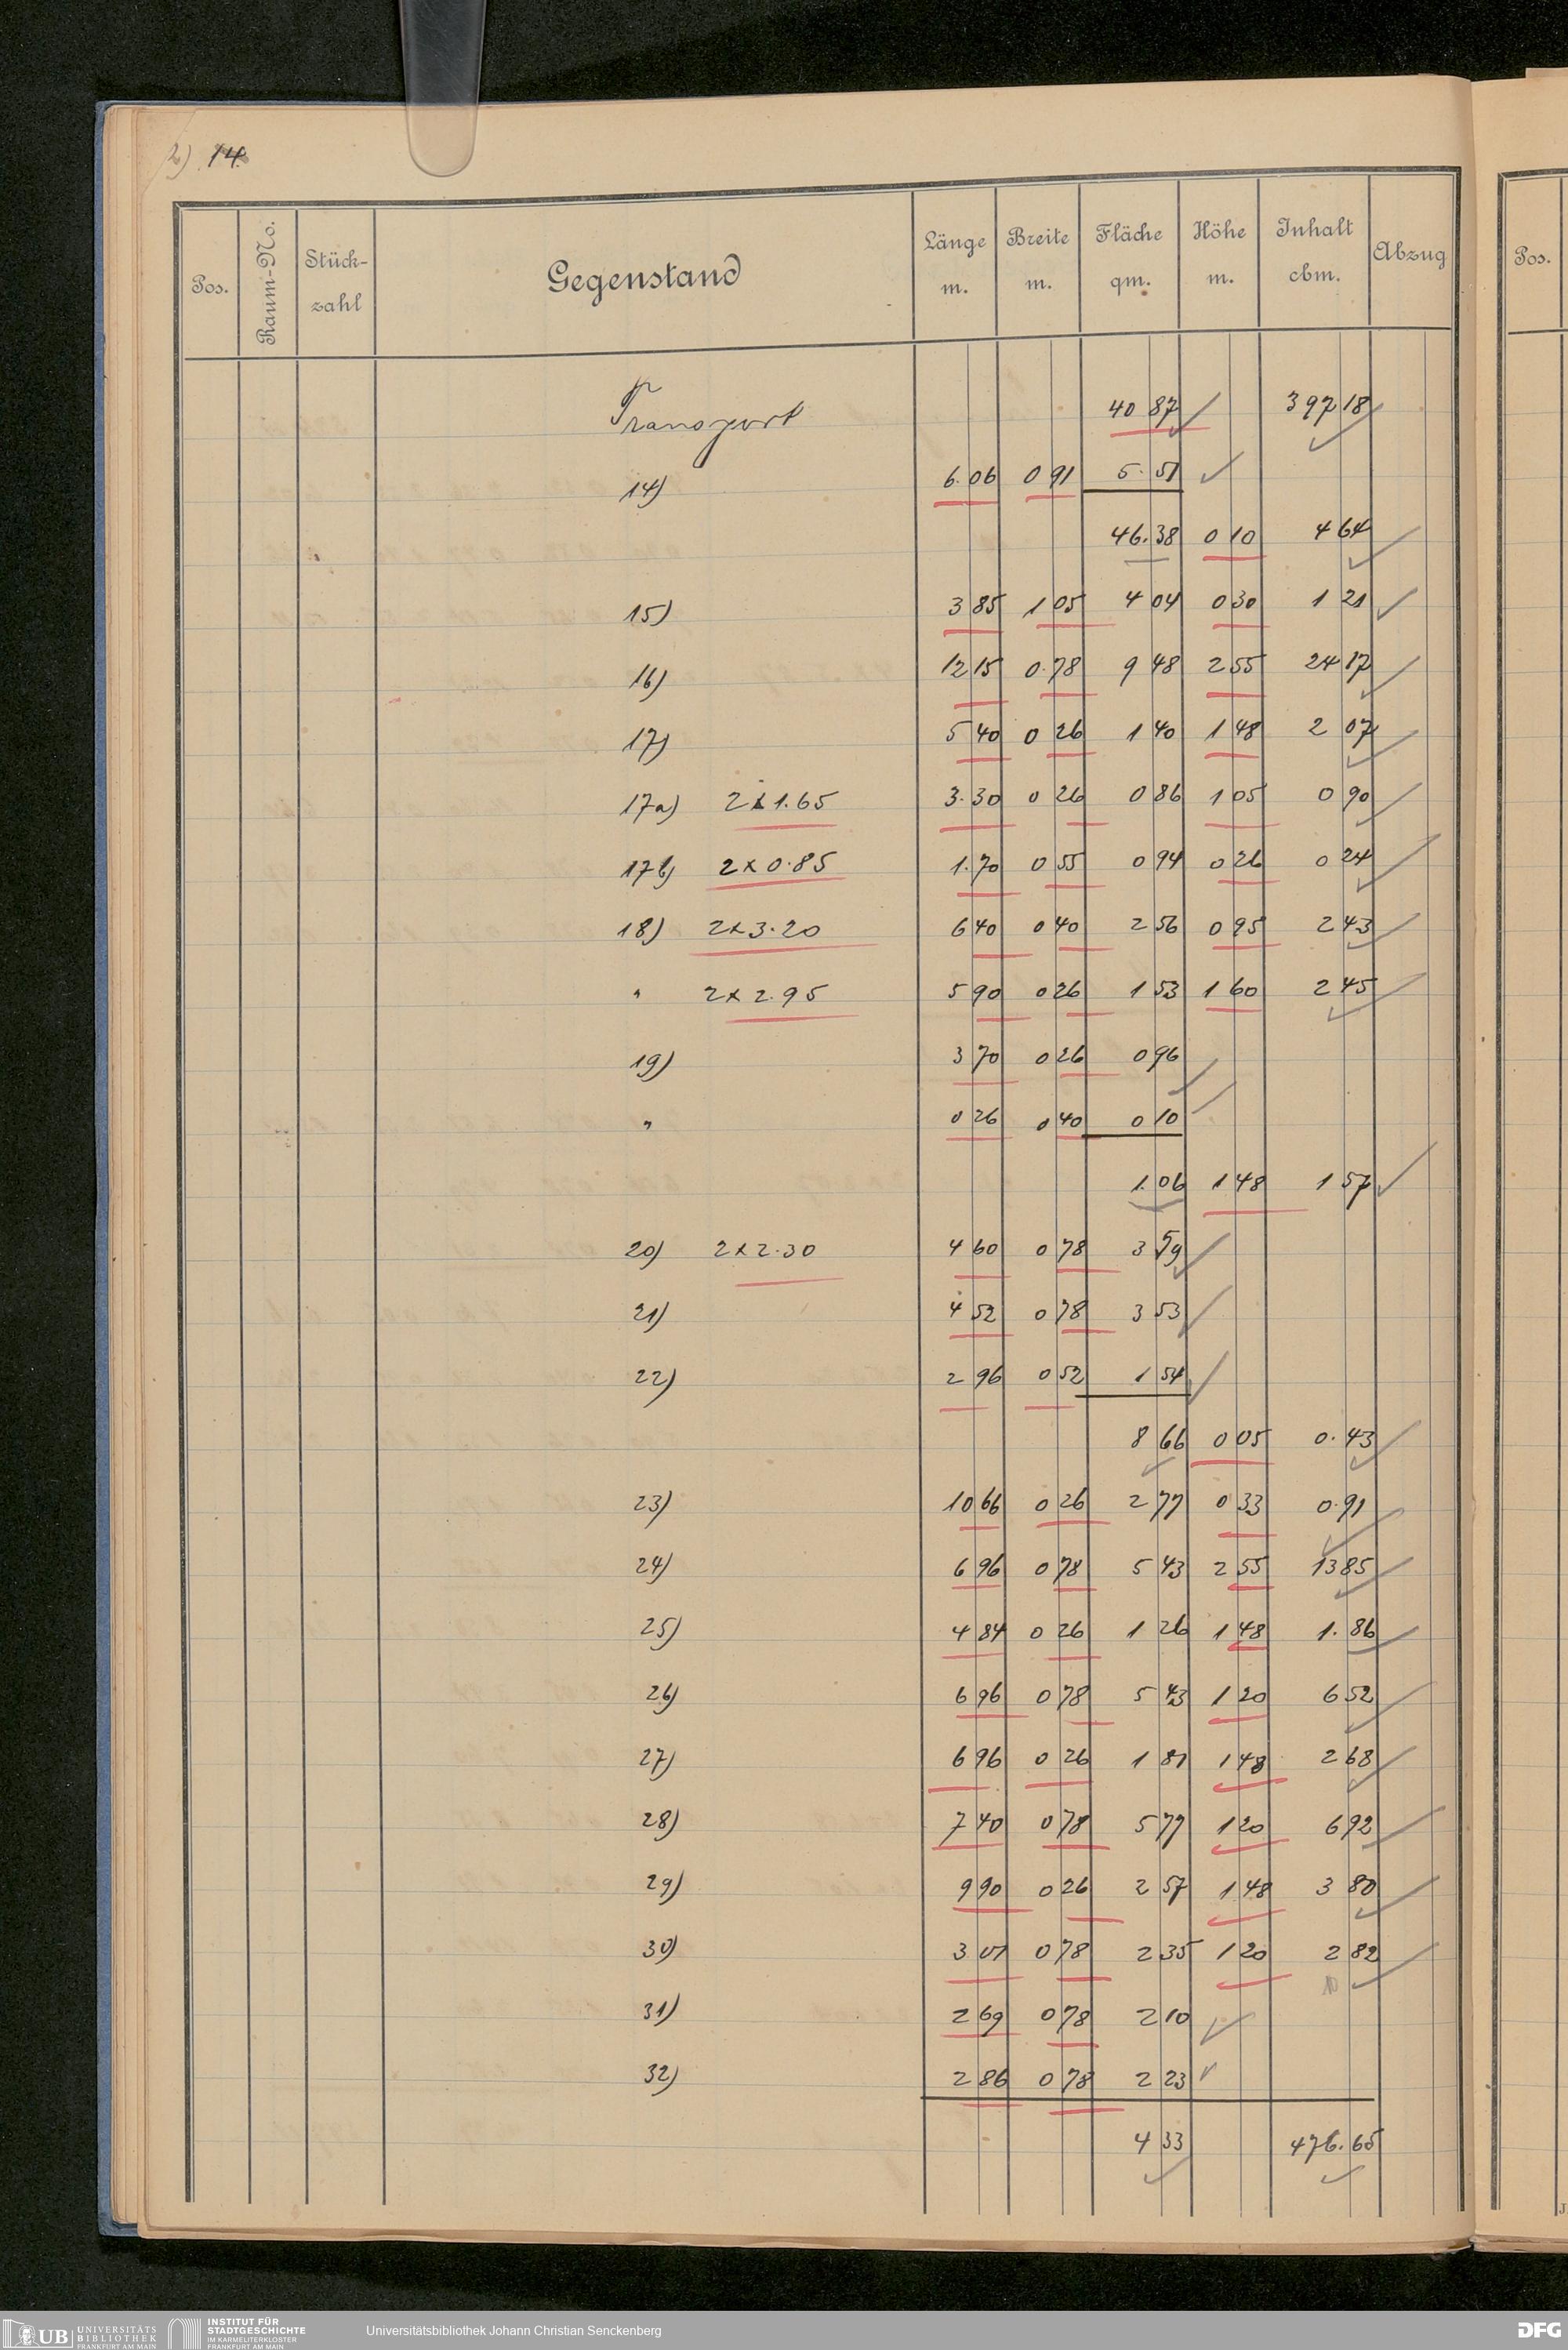 2) 14.
Pos. Raum-No. Stück-zahl Gegenstand Länge m. Breite m. Fläche qm. Höhe m. Inhalt cbm. Abzug Pos.
Transport 40 87 397 18
14) 6.06 0 91 5.51
46.38 0 10 4 64
15) 3 85 1 05 4 04 0 30 1 21
16) 12 15 0.78 9 48 2 55 24 17
17) 5 40 0 26 1 40 1 48 2 07
17a) 2 x 1.65 3.30 0 26 0 86 1 05 0 90
17b) 2 x 0.85 1.70 0 55 0 94 0 26 0 24
18) 2 x 3.20 6 40 0 40 2 56 0 95 2 43
" 2 x 2.95 5 90 0 26 1 53 1 60 2 45
19) 3 70 0 26 0 96
" 0 26 0 40 0 10
1.06 1 48 1 57
20) 2 x 2.30 4 60 0 78 3 59
21) 4 52 0 78 3 53
22) 2 96 0 52 1 54
8 66 0 05 0.43
23) 10 66 0 26 2 77 0 33 0.91
24) 6 96 0 78 5 43 2 55 13 85
25) 4 84 0 26 1 26 1 48 1.86
26) 6 96 0 78 5 43 1 20 6 52
27) 6 96 0 26 1 81 1 48 2 68
28) 7 40 0 78 5 77 1 20 6 92
29) 9 90 0 26 2 57 1 48 3 80
30) 3 01 0 78 2 35 1 20 2 82
31) 2 69 0 78 2 10
32) 2 86 0 78 2 23
4 33 476.65
UB UNIVERSITÄTS BIBLIOTHEK FRANKFURT AM MAIN
INSTITUT FÜR STADTGESCHICHTE IM KARMELITERKLOSTER FRANKFURT AM MAIN
Universitätsbibliothek Johann Christian Senckenberg
DFG